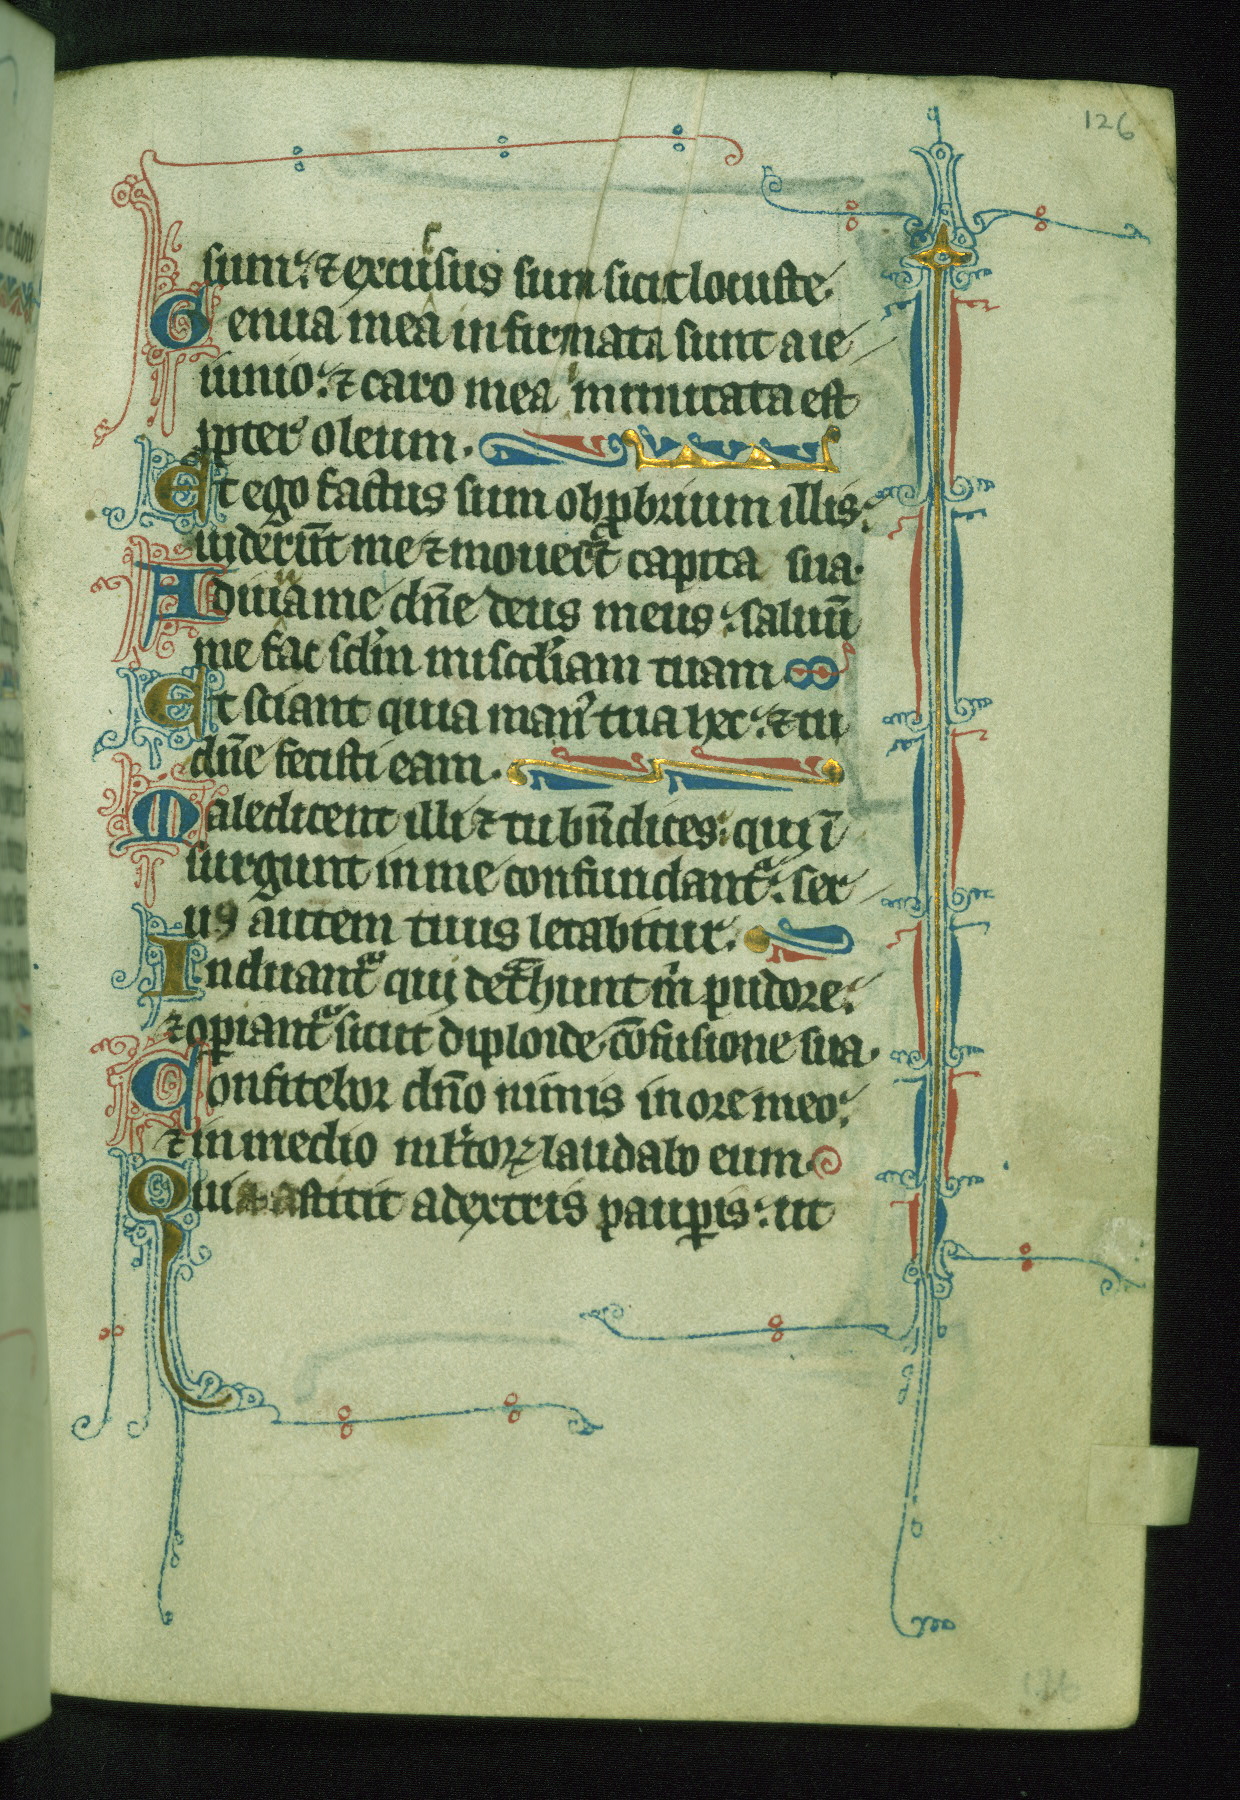 126
sum: ⁊ excusͬsus sum sicut locuste.
Genua mea infirmata sunt a ie
iunio: ⁊ caro mea inmutata est
ꝓpter oleum.
Et ego factus sum obꝓbrium illis:
uiderūt me ⁊ mouerͭt capita sua.
Adiuua me dn̄e deus meus: saluū
me fac scdm̄ miscd̓iam tuam
Et sciant quia man᾽ tua hec: ⁊ tu
dn̄e fecisti eam.
Maledicent illi ⁊ tu bn̄dices: qui ī
surgunt in me confundantᷓ: ser
uꝰ autem tuus letabitur.
Induantᷓ qui detᷓhunt m̓ pudore:
⁊ opiantᷓ sicut diploide cōfusione sua.
Confitebor dn̄o nimis in ore meo:
⁊ in medio mltoꝝ laudabo eum
Quia astitit a dextris pauꝑis: ut
126